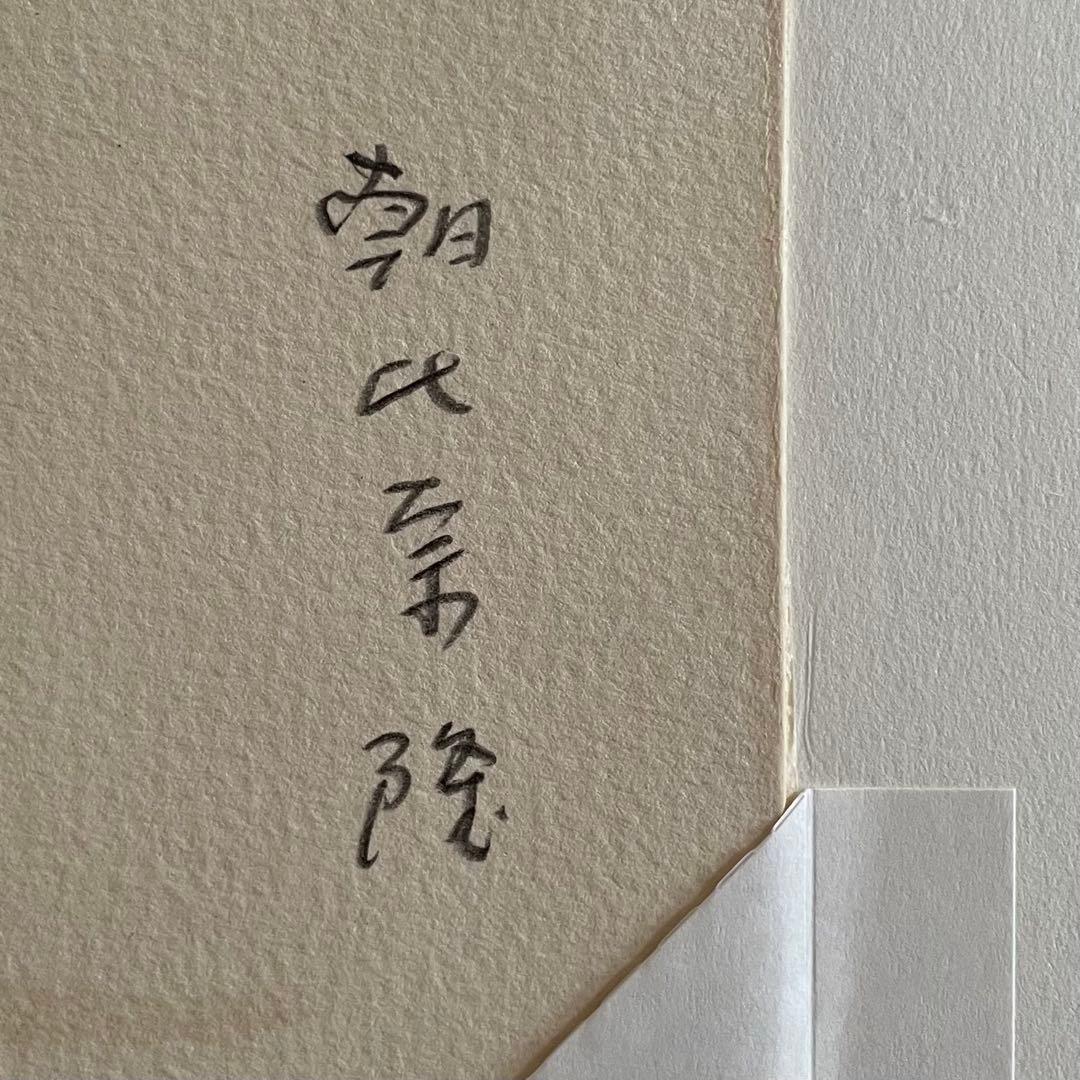 朝比奈隆